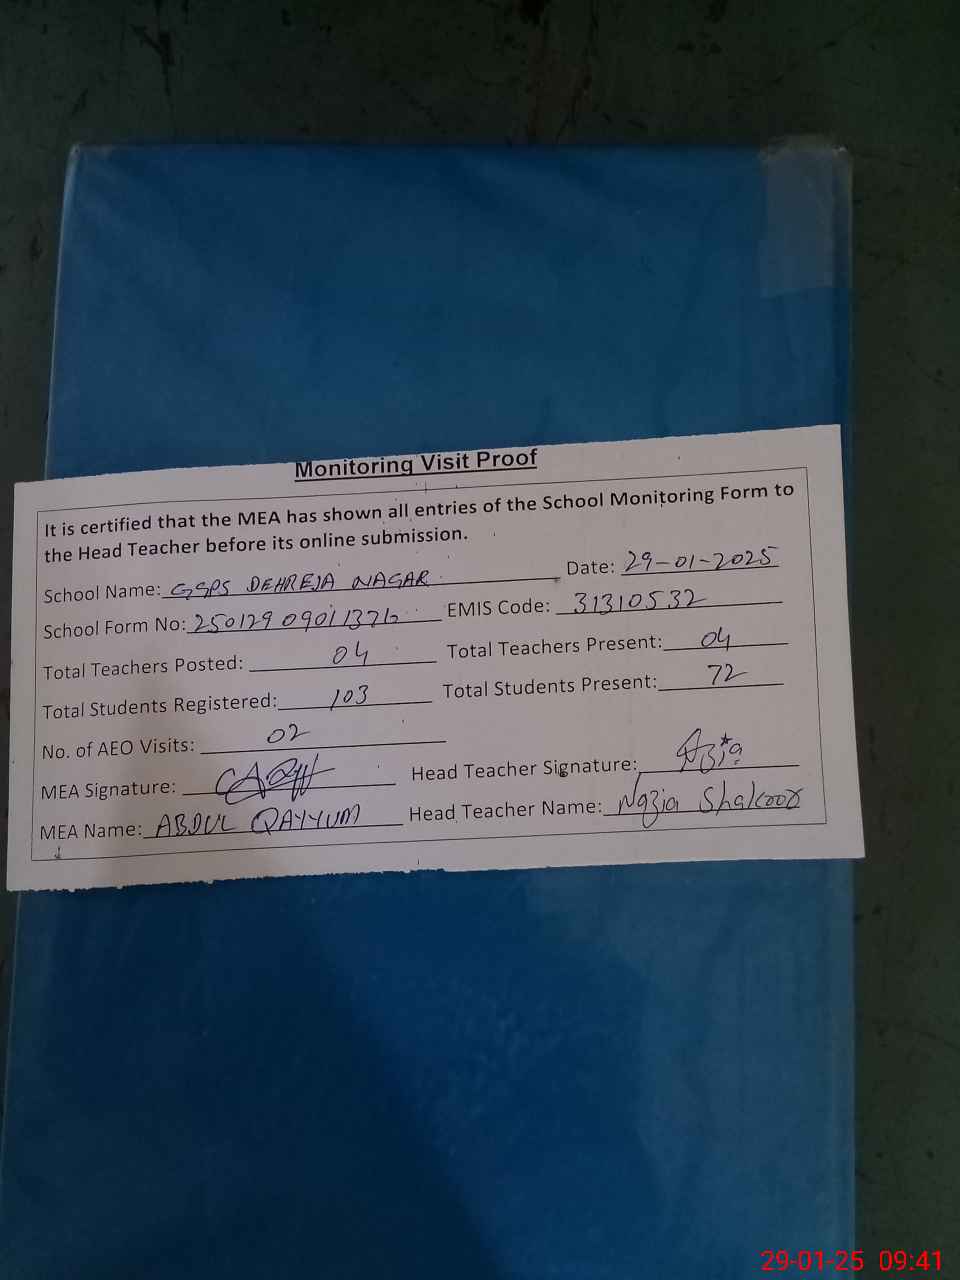 Monitoring Visit Proof
It is certified that the MEA has shown all entries of the School Monitoring Form to
the Head Teacher before its online submission.
School Name: GGPS DEHREJA NAGAR Date: 29-01-2025
School Form No: 25012909011376 EMIS Code: 31310532
Total Teachers Posted: 04 Total Teachers Present: 04
Total Students Registered: 103 Total Students Present: 72
No. of AEO Visits: 02
MEA Signature: Head Teacher Signature:
MEA Name: ABDUL QAYYUM Head Teacher Name: Nazia Shakoor
29-01-25 09:41